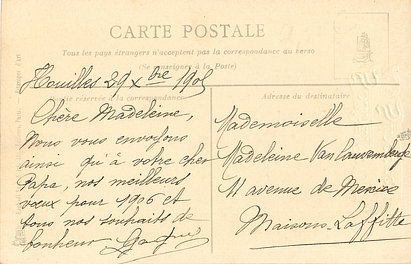 CARTE POSTALE
Tous les pays étrangers n'acceptent pas la correspondance au verso
(Se renseigner à la Poste)
Houilles 29 Xbre 1905
réservée à la correspondance
Adresse du destinataire
Chère Madeleine,
Nous vous envoyons
ainsi qu'à votre cher
Papa, nos meilleurs
vœux pour 1906 et
tous nos souhaits de
bonheur
Mademoiselle
Madeleine
11 avenue de
Maisons-Laffitte